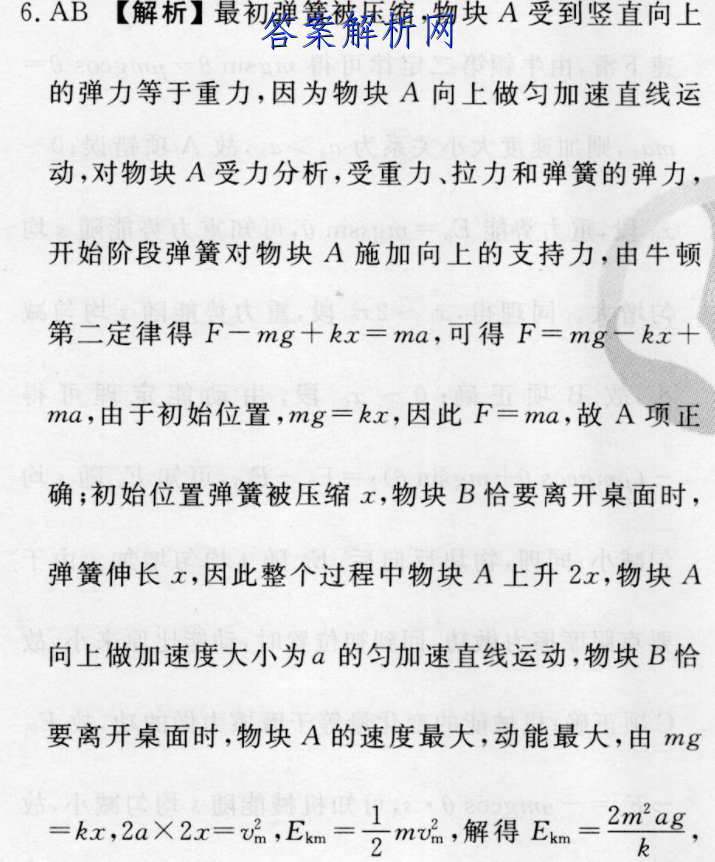 6. AB 【解析】最初弹簧被压缩,物块 A 受到竖直向上
答案解析网
的弹力等于重力,因为物块 A 向上做匀加速直线运
动,对物块 A 受力分析,受重力、拉力和弹簧的弹力,
开始阶段弹簧对物块 A 施加向上的支持力,由牛顿
第二定律得 F－mg＋kx＝ma,可得 F＝mg－kx＋
ma,由于初始位置,mg＝kx,因此 F＝ma,故 A 项正
确;初始位置弹簧被压缩 x,物块 B 恰要离开桌面时,
弹簧伸长 x,因此整个过程中物块 A 上升 2x,物块 A
向上做加速度大小为 a 的匀加速直线运动,物块 B 恰
要离开桌面时,物块 A 的速度最大,动能最大,由 mg
＝kx,2a×2x＝v_m^2,E_km＝1/2 mv_m^2,解得 E_km＝2m^2ag/k,